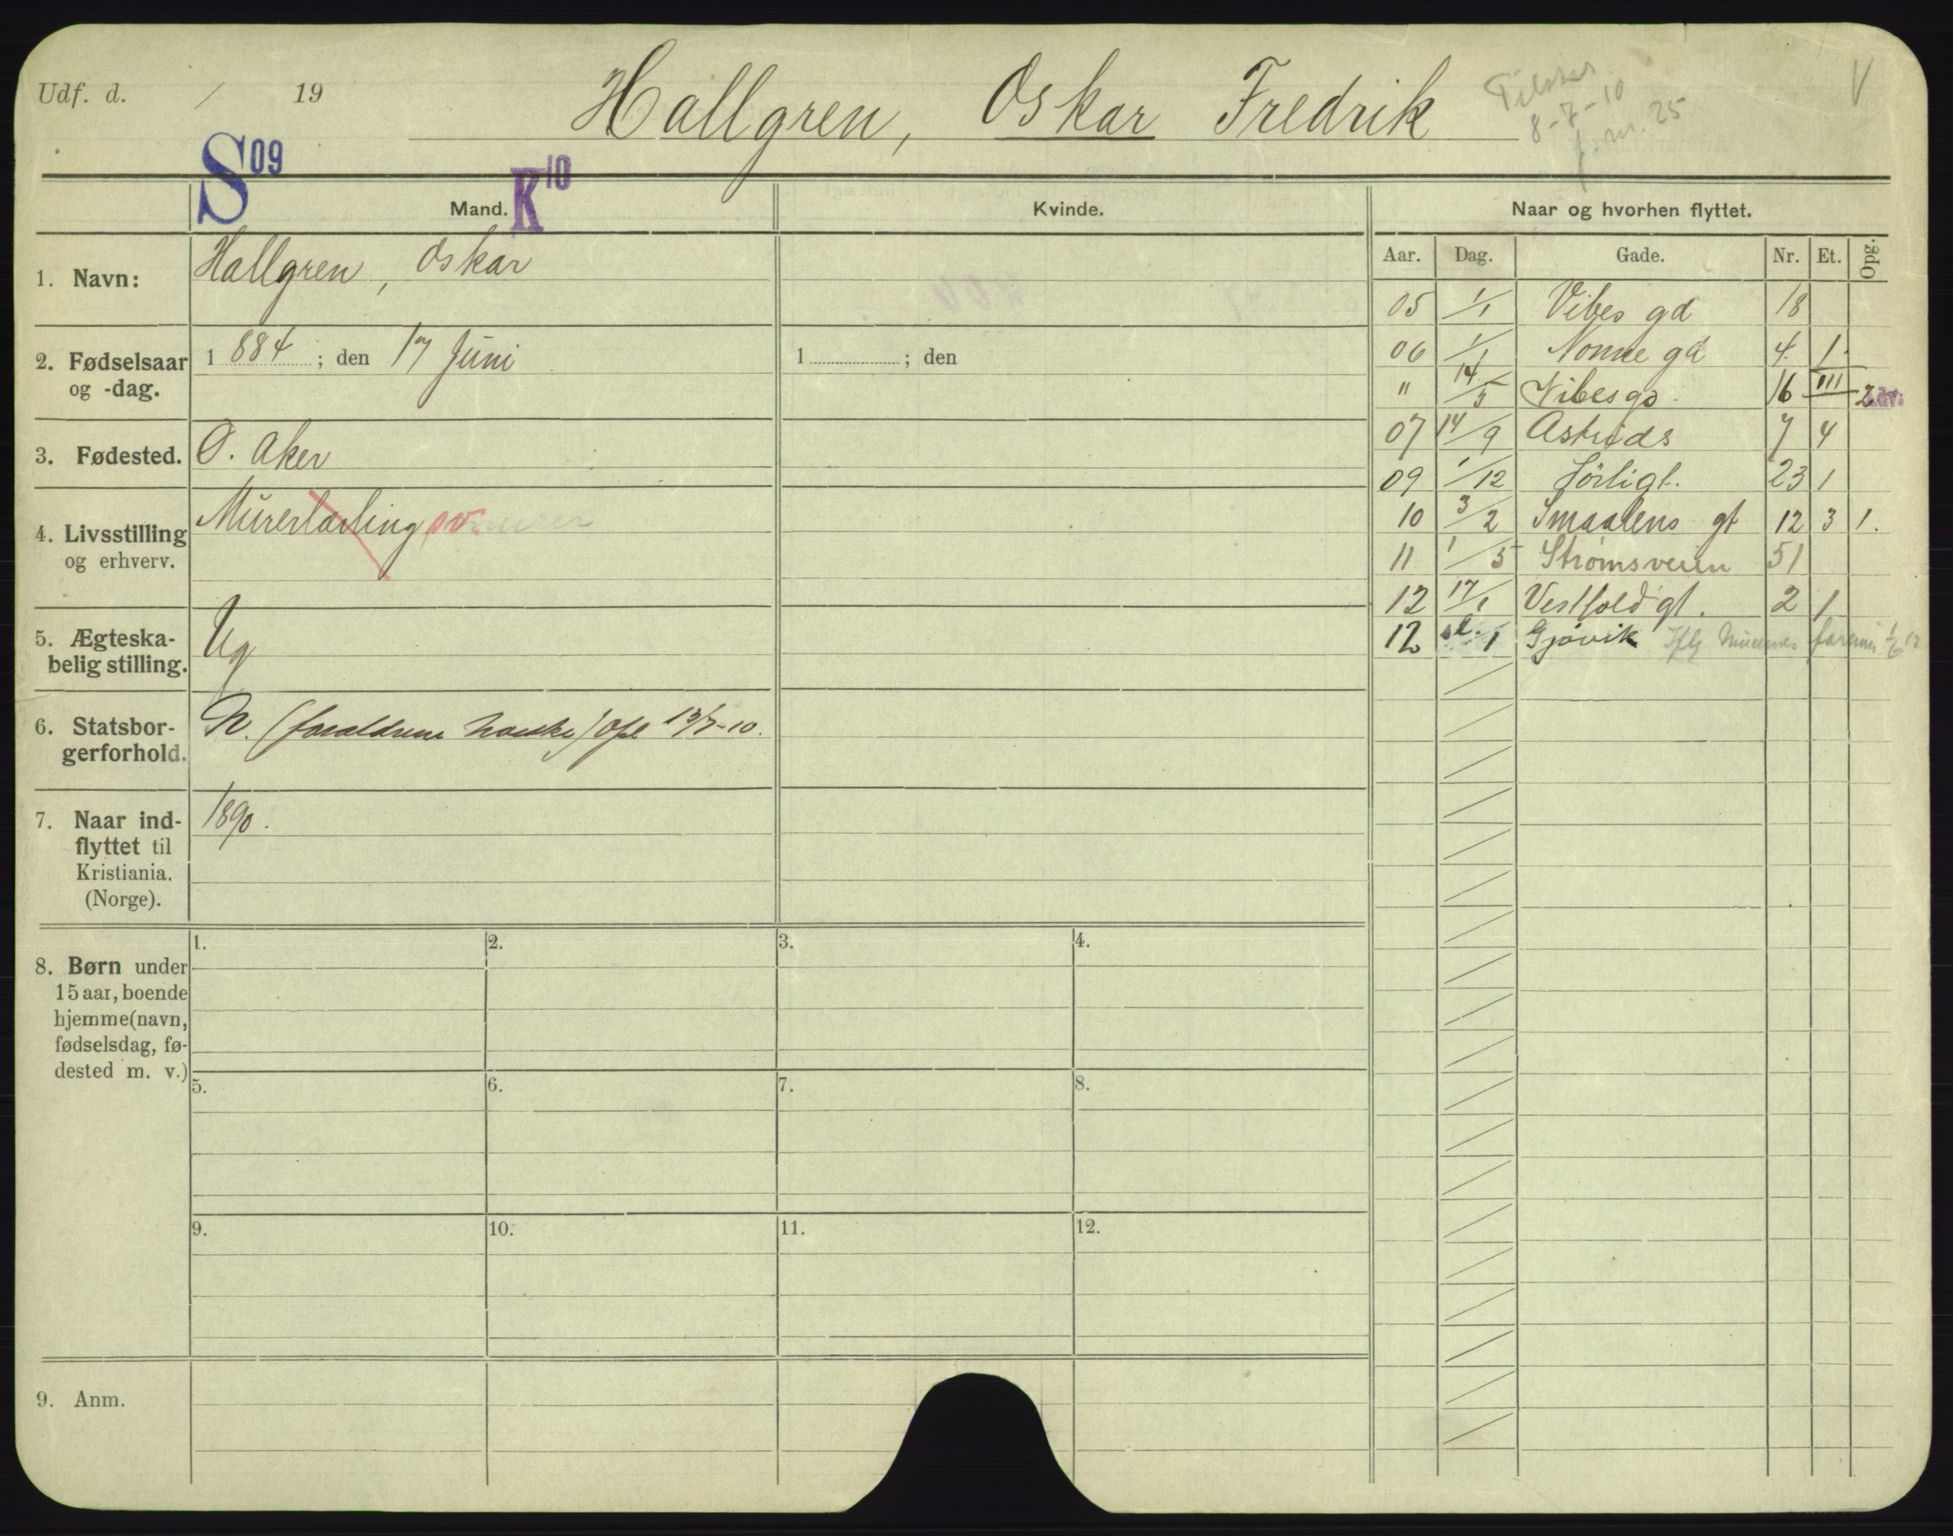 Udf. d. / 19
Hallgren, Oskar Fredrik
8-7-10
j. nr. 25
V
S 09
K 10
Mand.
Kvinde.
Naar og hvorhen flyttet.
Aar. Dag. Gade. Nr. Et. Opg.
1. Navn:
Hallgren, Oskar
2. Fødselsaar
og -dag.
1 884 ; den 17 Juni
1 ; den
3. Fødested.
Ø. Aker
4. Livsstilling
og erhverv.
Murerlærling sv
5. Ægteska-
belig stilling.
Ug
6. Statsbor-
gerforhold.
N. (forældrene norske) Opl 13/7-10.
7. Naar ind-
flyttet til
Kristiania.
(Norge).
1890.
05 1/1 Vibes gd 18
06 1/1 Nonne gd 4. 1.
" 14/5 Vibesgd. 16 III 2
07 14/9 Astrids 7 4
09 1/12 Sörligt. 23 1
10 3/2 Smaalens gt 12 3 1.
11 1/5 Strømsveien 51
12 17/1 Vestfold gt. 2 1
12 sl. 1 Gjøvik Iflg Murernes foreni 1/6 12
8. Børn under
15 aar, boende
hjemme (navn,
fødselsdag, fø-
dested m. v.)
1. 2. 3. 4.
5. 6. 7. 8.
9. 10. 11. 12.
9. Anm.